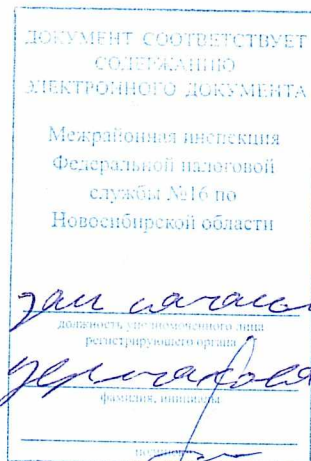 ДОКУМЕНТ СООТВЕТСТВУЕТ
СОДЕРЖАНИЮ
ЭЛЕКТРОННОГО ДОКУМЕНТА
Межрайонная инспекция
Федеральной налоговой
службы №16 по
Новосибирской области
зам начальн
должность уполномоченного лица
регистрирующего органа
фамилия, инициалы
подпись